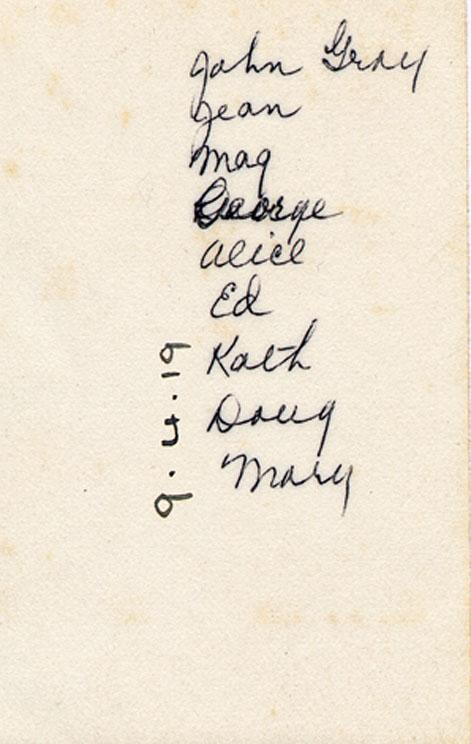 John Gray
Jean
Mag
George
Alice
Ed
Kath
Doug
Mary
9.4.19